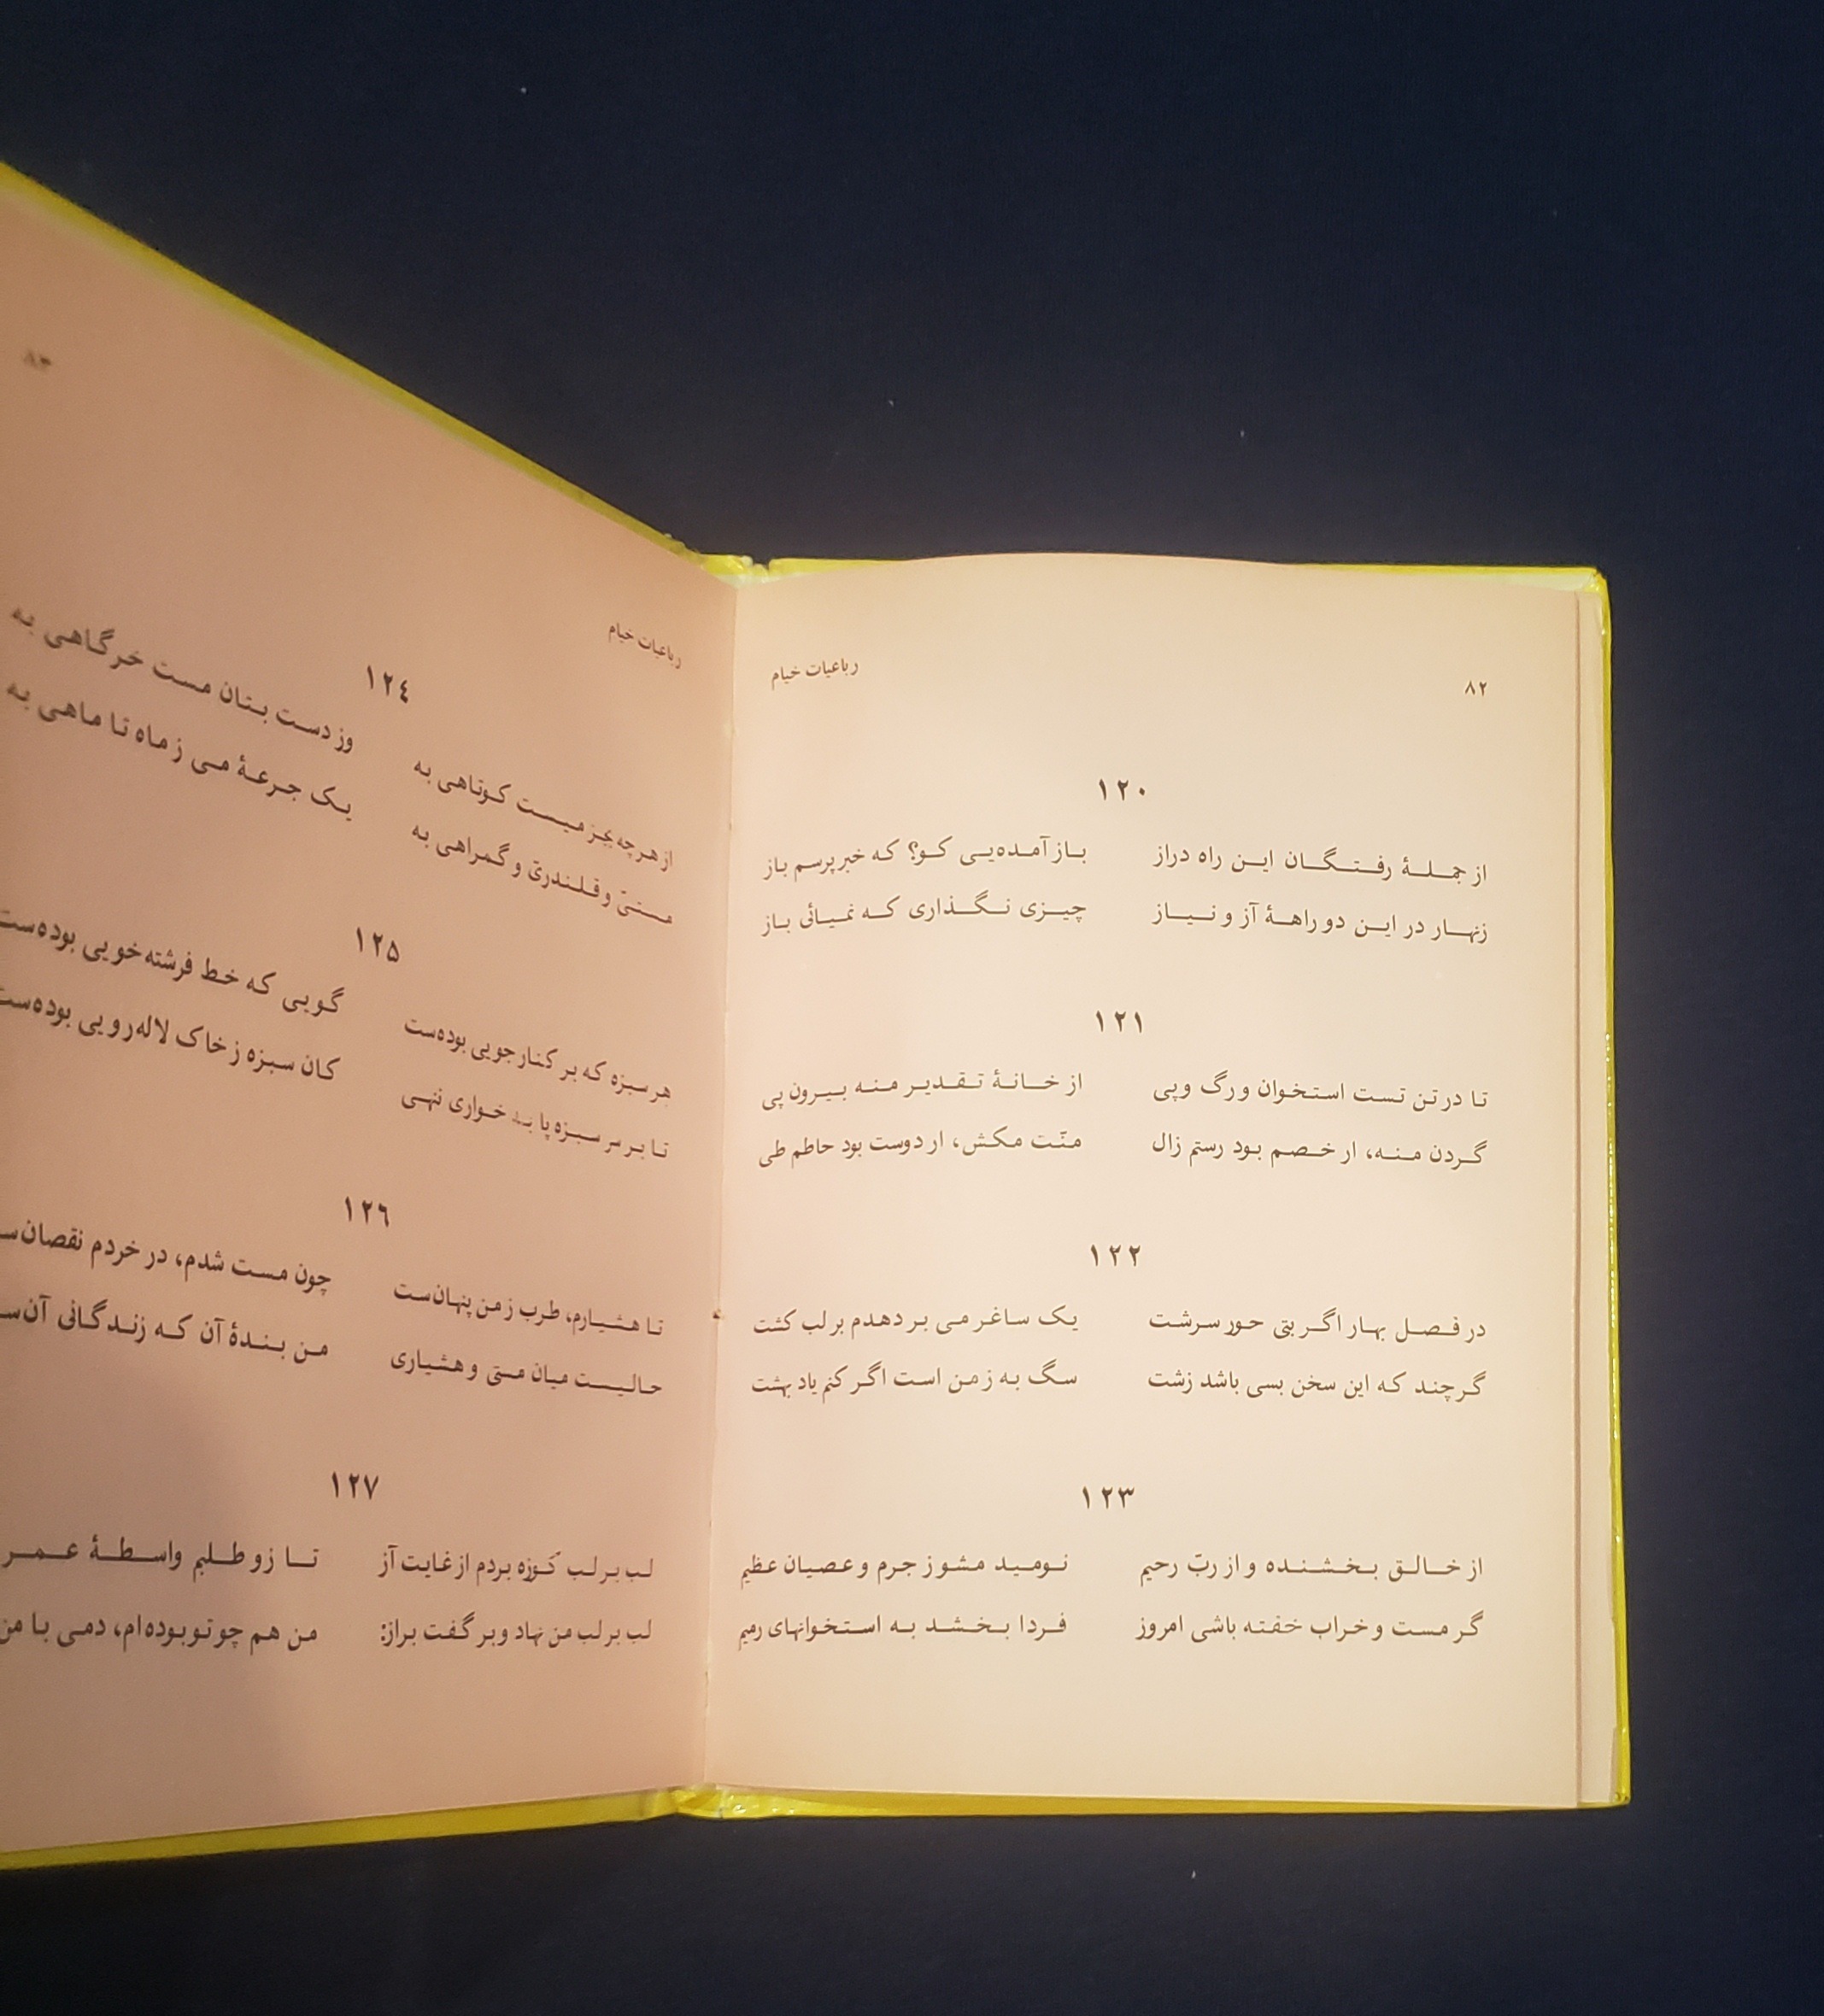 ۸۲ رباعیات خیام
۱۲۰
از جملهٔ رفتگان این راه دراز باز آمده‌یی کو؟ که خبر پرسم باز
زنهار در این دو راههٔ آز و نیاز چیزی نگذاری که نمیائی باز
۱۲۱
تا در تن تست استخوان و رگ و پی از خانهٔ تقدیر منه بیرون پی
گردن منه، ار خصم بود رستم زال منّت مکش، ار دوست بود حاطم طی
۱۲۲
در فصل بهار اگر بتی حور سرشت یک ساغر می بر دهدم بر لب کشت
گرچند که این سخن بسی باشد زشت سگ به ز من است اگر کنم یاد بهشت
۱۲۳
از خالق بخشنده و از ربّ رحیم نومید مشو ز جرم و عصیان عظیم
گر مست و خراب خفته باشی امروز فردا بخشد به استخوانهای رمیم
رباعیات خیام ۸۳
۱۲٤
از هرچه بجز میست کوتاهی به وز دست بتان مست خرگاهی به
مستیّ و قلندریّ و گمراهی به یک جرعهٔ می ز ماه تا ماهی به
۱۲۵
هر سبزه که بر کنار جویی بوده‌ست گویی که خط فرشته‌خویی بوده‌ست
تا بر سر سبزه پا بـه خواری ننهی کان سبزه ز خاک لاله‌رویی بوده‌ست
۱۲٦
تا هشیارم، طرب ز من پنهان‌ست چون مست شدم، در خردم نقصان‌س
حالیست میان مستی و هشیاری من بندهٔ آن که زندگانی آن‌س
۱۲۷
لب بر لب کوزه بردم از غایت آز تا زو طلبم واسطهٔ عمر
لب بر لب من نهاد و بر گفت براز: من هم چو تو بوده‌ام، دمی با من